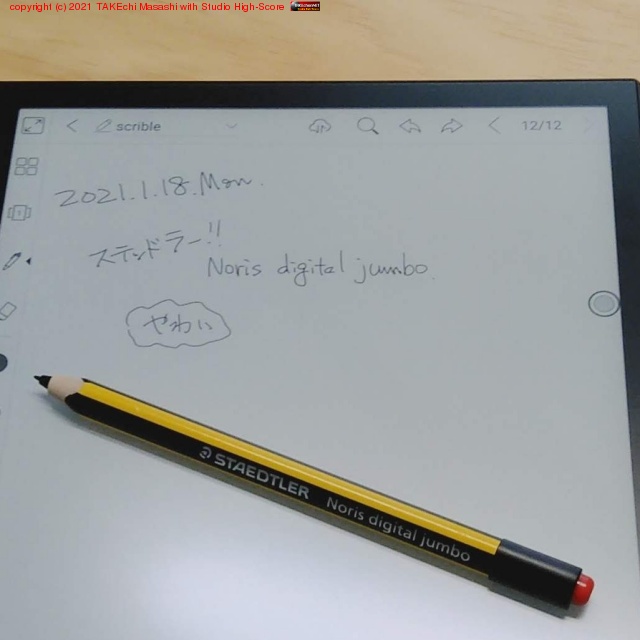 copyright (c) 2021 TAKEchi Masashi with Studio High-Score
scrible
12/12
2021.1.18.Mon.
ステッドラー!!
Noris digital jumbo.
やわい
STAEDTLER Noris digital jumbo